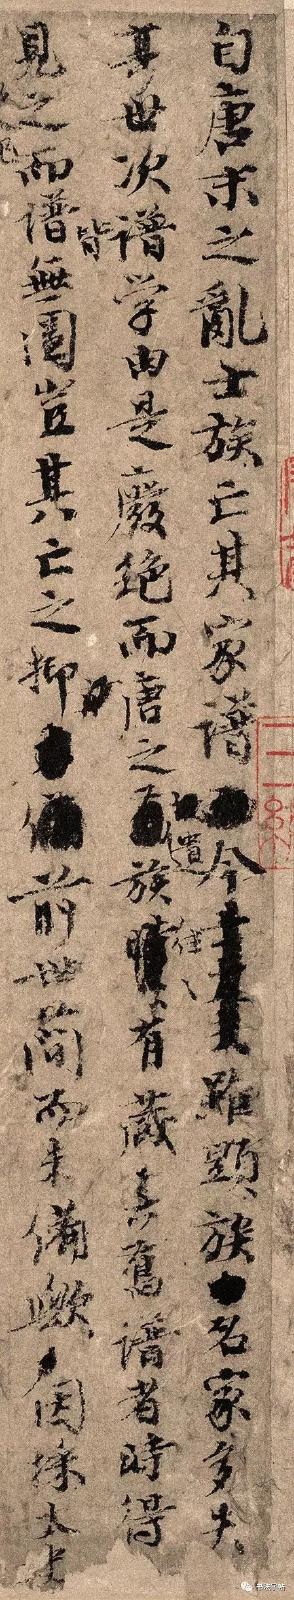 自唐末之亂士族亡其家譜今雖顯族名家多失
其世次譜学由是廢絶而唐之遺族往〻有藏其舊譜者時得
見之而譜皆無圖豈其亡之抑前世簡而未備歟因採太史
书法字帖